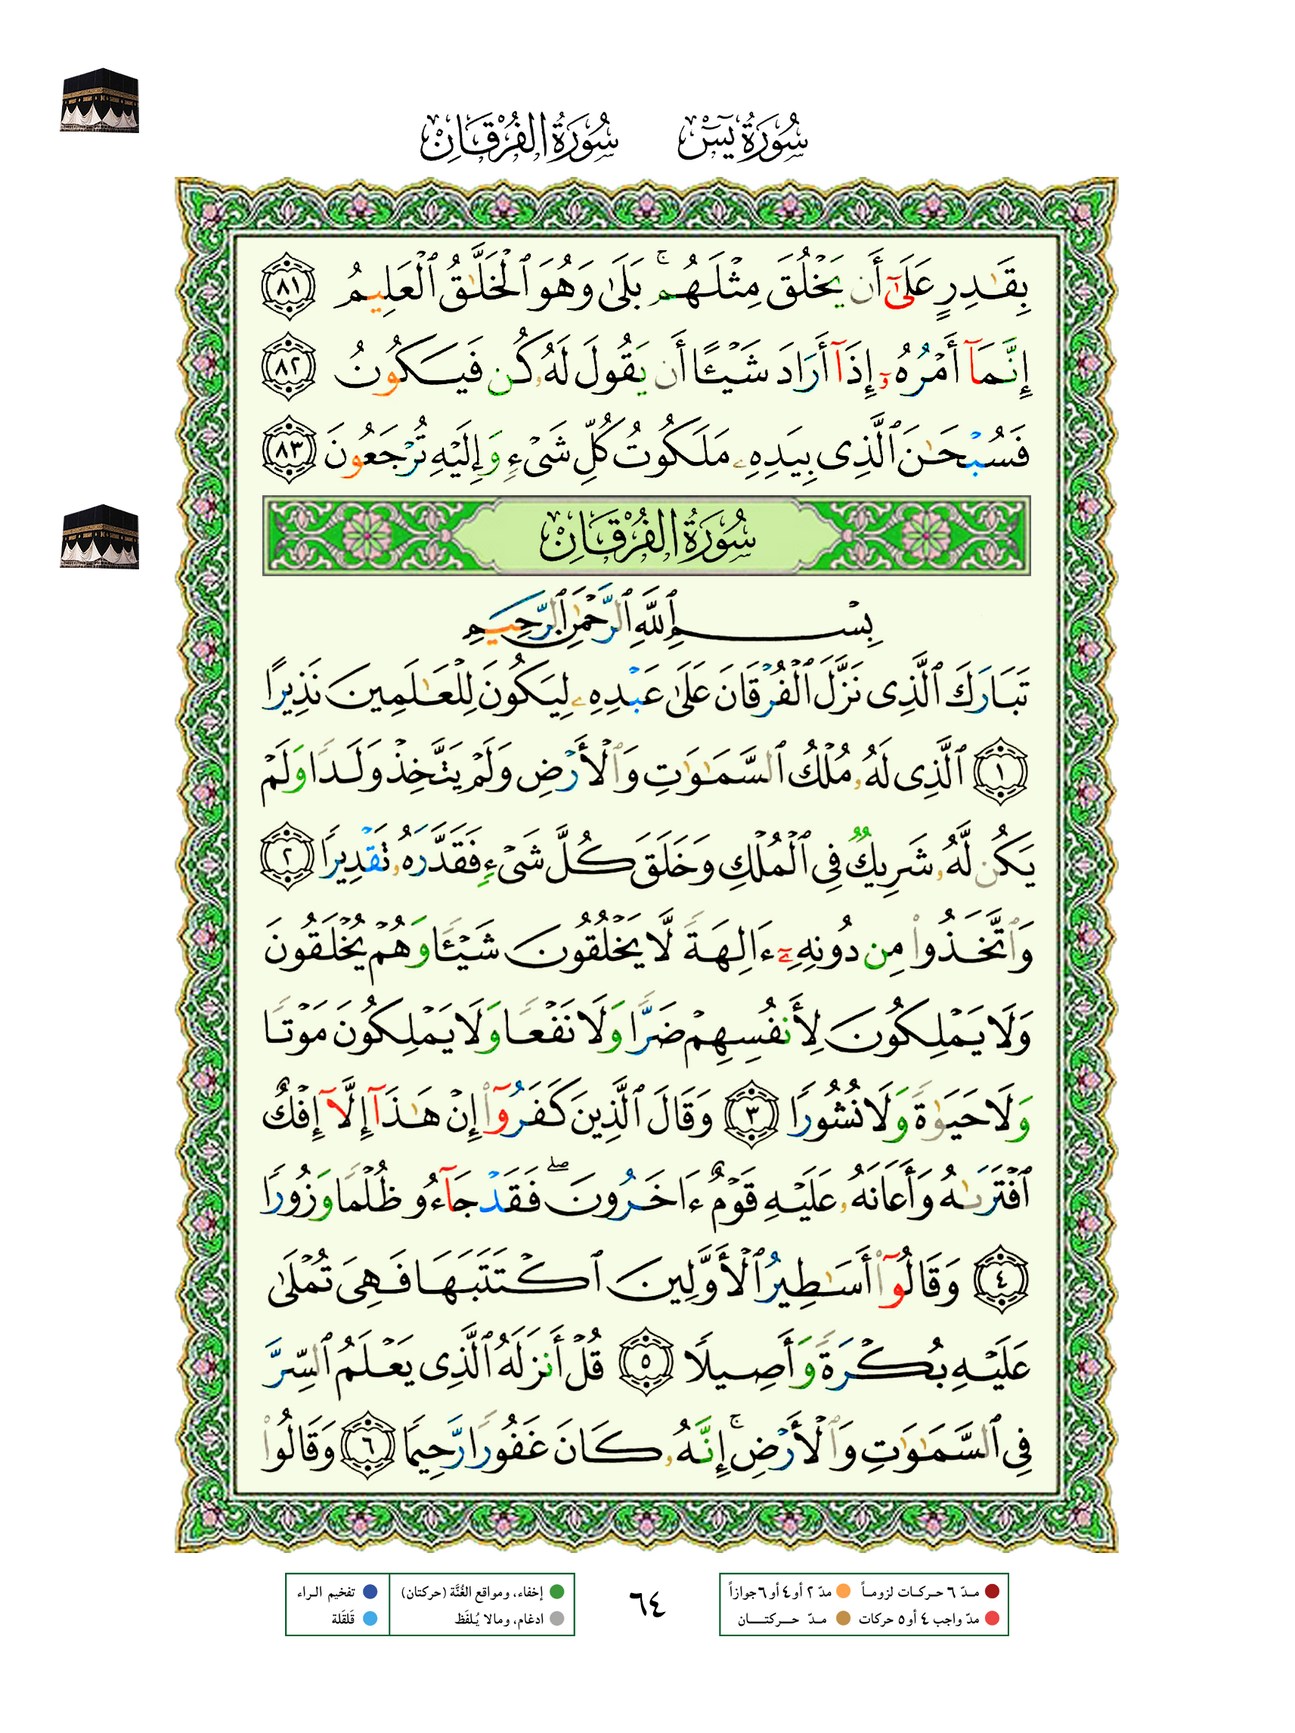 سُورَةُ يسٓ سُورَةُ الفُرْقَانِ
بِقَٰدِرٍ عَلَىٰٓ أَن يَخْلُقَ مِثْلَهُم ۚ بَلَىٰ وَهُوَ ٱلْخَلَّٰقُ ٱلْعَلِيمُ ٨١
إِنَّمَآ أَمْرُهُۥٓ إِذَآ أَرَادَ شَيْـًٔا أَن يَقُولَ لَهُۥ كُن فَيَكُونُ ٨٢
فَسُبْحَٰنَ ٱلَّذِى بِيَدِهِۦ مَلَكُوتُ كُلِّ شَىْءٍ وَإِلَيْهِ تُرْجَعُونَ ٨٣
سُورَةُ الفُرْقَانِ
بِسْمِ ٱللَّهِ ٱلرَّحْمَٰنِ ٱلرَّحِيمِ
تَبَارَكَ ٱلَّذِى نَزَّلَ ٱلْفُرْقَانَ عَلَىٰ عَبْدِهِۦ لِيَكُونَ لِلْعَٰلَمِينَ نَذِيرًا
١ ٱلَّذِى لَهُۥ مُلْكُ ٱلسَّمَٰوَٰتِ وَٱلْأَرْضِ وَلَمْ يَتَّخِذْ وَلَدًا وَلَمْ
يَكُن لَّهُۥ شَرِيكٌ فِى ٱلْمُلْكِ وَخَلَقَ كُلَّ شَىْءٍ فَقَدَّرَهُۥ تَقْدِيرًا ٢
وَٱتَّخَذُوا۟ مِن دُونِهِۦٓ ءَالِهَةً لَّا يَخْلُقُونَ شَيْـًٔا وَهُمْ يُخْلَقُونَ
وَلَا يَمْلِكُونَ لِأَنفُسِهِمْ ضَرًّا وَلَا نَفْعًا وَلَا يَمْلِكُونَ مَوْتًا
وَلَا حَيَوٰةً وَلَا نُشُورًا ٣ وَقَالَ ٱلَّذِينَ كَفَرُوٓا۟ إِنْ هَٰذَآ إِلَّآ إِفْكٌ
ٱفْتَرَىٰهُ وَأَعَانَهُۥ عَلَيْهِ قَوْمٌ ءَاخَرُونَ ۖ فَقَدْ جَآءُو ظُلْمًا وَزُورًا
٤ وَقَالُوٓا۟ أَسَٰطِيرُ ٱلْأَوَّلِينَ ٱكْتَتَبَهَا فَهِىَ تُمْلَىٰ
عَلَيْهِ بُكْرَةً وَأَصِيلًا ٥ قُلْ أَنزَلَهُ ٱلَّذِى يَعْلَمُ ٱلسِّرَّ
فِى ٱلسَّمَٰوَٰتِ وَٱلْأَرْضِ ۚ إِنَّهُۥ كَانَ غَفُورًا رَّحِيمًا ٦ وَقَالُوا۟
مـدّ ٦ حـركـات لزومـاً مدّ ٢ أو ٤ أو ٦ جوازاً
مدّ واجب ٤ أو ٥ حركات مـدّ حـــركتـــان
٦٤
إخفاء، ومواقع الغُنَّة (حركتان) تفخيم الـراء
ادغام، ومالا يُـلفَظ قَلقَلة